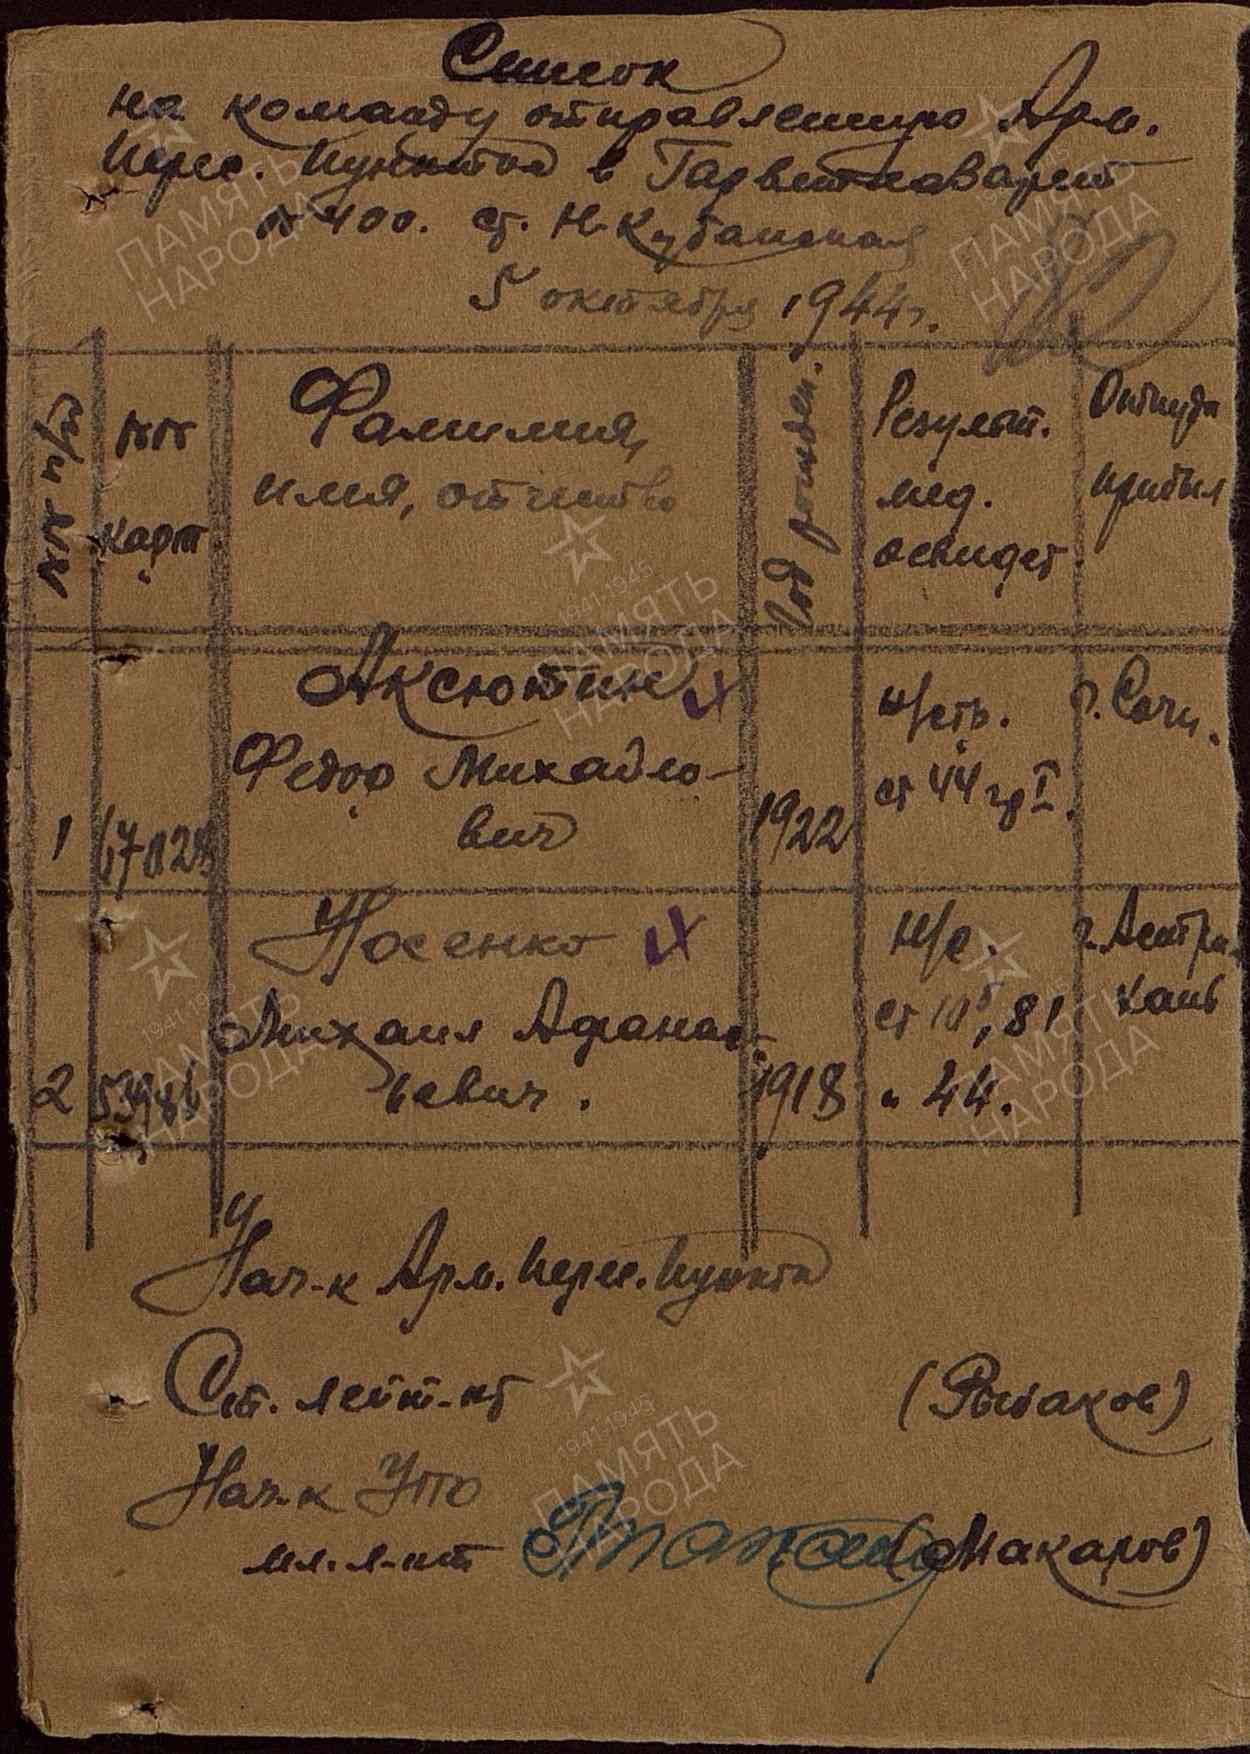 Список
на команду отправленную Арм.
Перес. Пунктом в
№ 400. ст. Н-Кубанская
5 октября 1944 г.
№№ п/п
№№ карт
Фамилия, имя, отчество
Год рожден.
Результ. мед. освидет.
Откуда прибыл
1
Аксютин
Федор Михайло-
вич
1922
н/сть.
ст 44 гр I.
г. Сочи.
2
Носенко
Михаил Афанас-
ьевич.
1918
н/с.
ст 10б, 81
и 44.
г. Астра-
хань
Нач-к Арм. Перес. Пункта
Ст. лейт-нт (Рыбаков)
Нач-к
мл. л-нт (Макаров)
ПАМЯТЬ НАРОДА
1941-1945